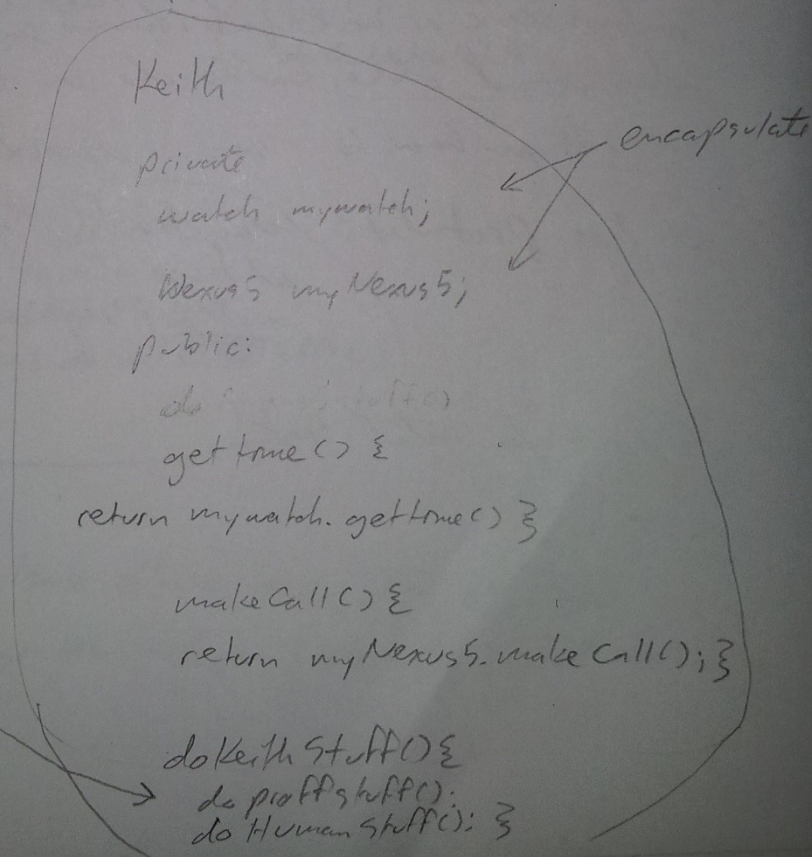 Keith
encapsulate
private
watch mywatch;
Nexus5 myNexus5;
public:
do stuff()
gettime() {
return mywatch.gettime() }
makeCall() {
return myNexus5.makeCall(); }
doKeithStuff() {
do proffstuff();
do HumanStuff(); }